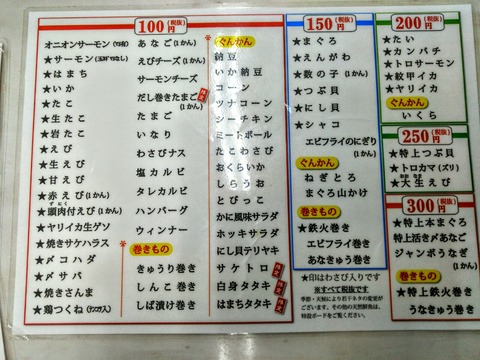 100円(税抜)
オニオンサーモン(ワサ抜)
★サーモン(玉ネギなし)
★はまち
★いか
★たこ
★生たこ
★岩たこ
★えび
★生えび
★甘えび
★赤えび(1かん)
★頭肉付えび(1かん)
★ヤリイカ生ゲソ
★焼きサケハラス
★〆コハダ
★〆サバ
★焼きさんま
★鶏つくね
あなご(1かん)
えびチーズ(1かん)
サーモンチーズ
だし巻きたまご(1かん)
たまご
いなり
わさびナス
塩カルビ
タレカルビ
ハンバーグ
ウィンナー
*巻きもの
きゅうり巻き
しんこ巻き
しば漬け巻き
*ぐんかん
納豆
いか納豆
コーン
ツナコーン
シーチキン
ミートボール
たこわさび
おくらいか
しらうお
とびっこ
かに風味サラダ
ホッキサラダ
にし貝テリヤキ
サケトロ
白身タタキ
はまちタタキ
150円(税抜)
★まぐろ
★えんがわ
★数の子(1かん)
★つぶ貝
★にし貝
★シャコ
エビフライのにぎり
(1かん)
ぐんかん
ねぎとろ
まぐろ山かけ
巻きもの
★鉄火巻き
エビフライ巻き
あなきゅう巻き
★印はわさび入りです
※すべて税抜です
季節・天候により若干ネタの変更が
ございます。その他の天然鮮魚は、
特設ボードをご覧ください。
200円(税抜)
★たい
★カンパチ
★トロサーモン
★紋甲イカ
★ヤリイカ
ぐんかん
いくら
250円(税抜)
★特上つぶ貝
★トロカマ(ズリ)
★大生えび
300円(税抜)
★特上本まぐろ
特上活き〆あなご
ジャンボうなぎ
(1かん)
巻きもの
★特上鉄火巻き
うなきゅう巻き